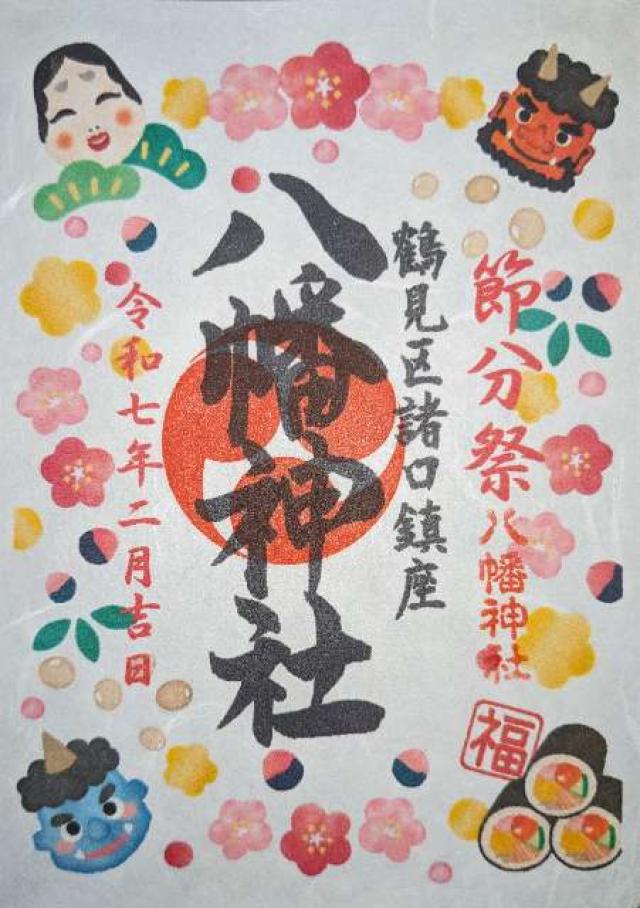 節分祭
八幡神社
鶴見区諸口鎮座
八幡神社
令和七年二月吉日
福